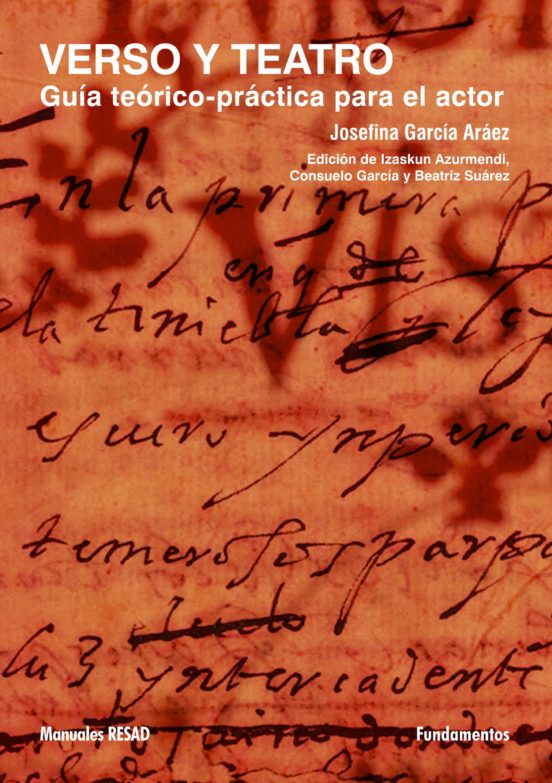 VERSO Y TEATRO
Guía teórico-práctica para el actor
Josefina García Aráez
Edición de Izaskun Azurmendi,
Consuelo García y Beatriz Suárez
En la primera p
en q de
la tiniebla y la
escuro ymperio
temerosos parpa
luz yntercadente
Manuales RESAD
Fundamentos